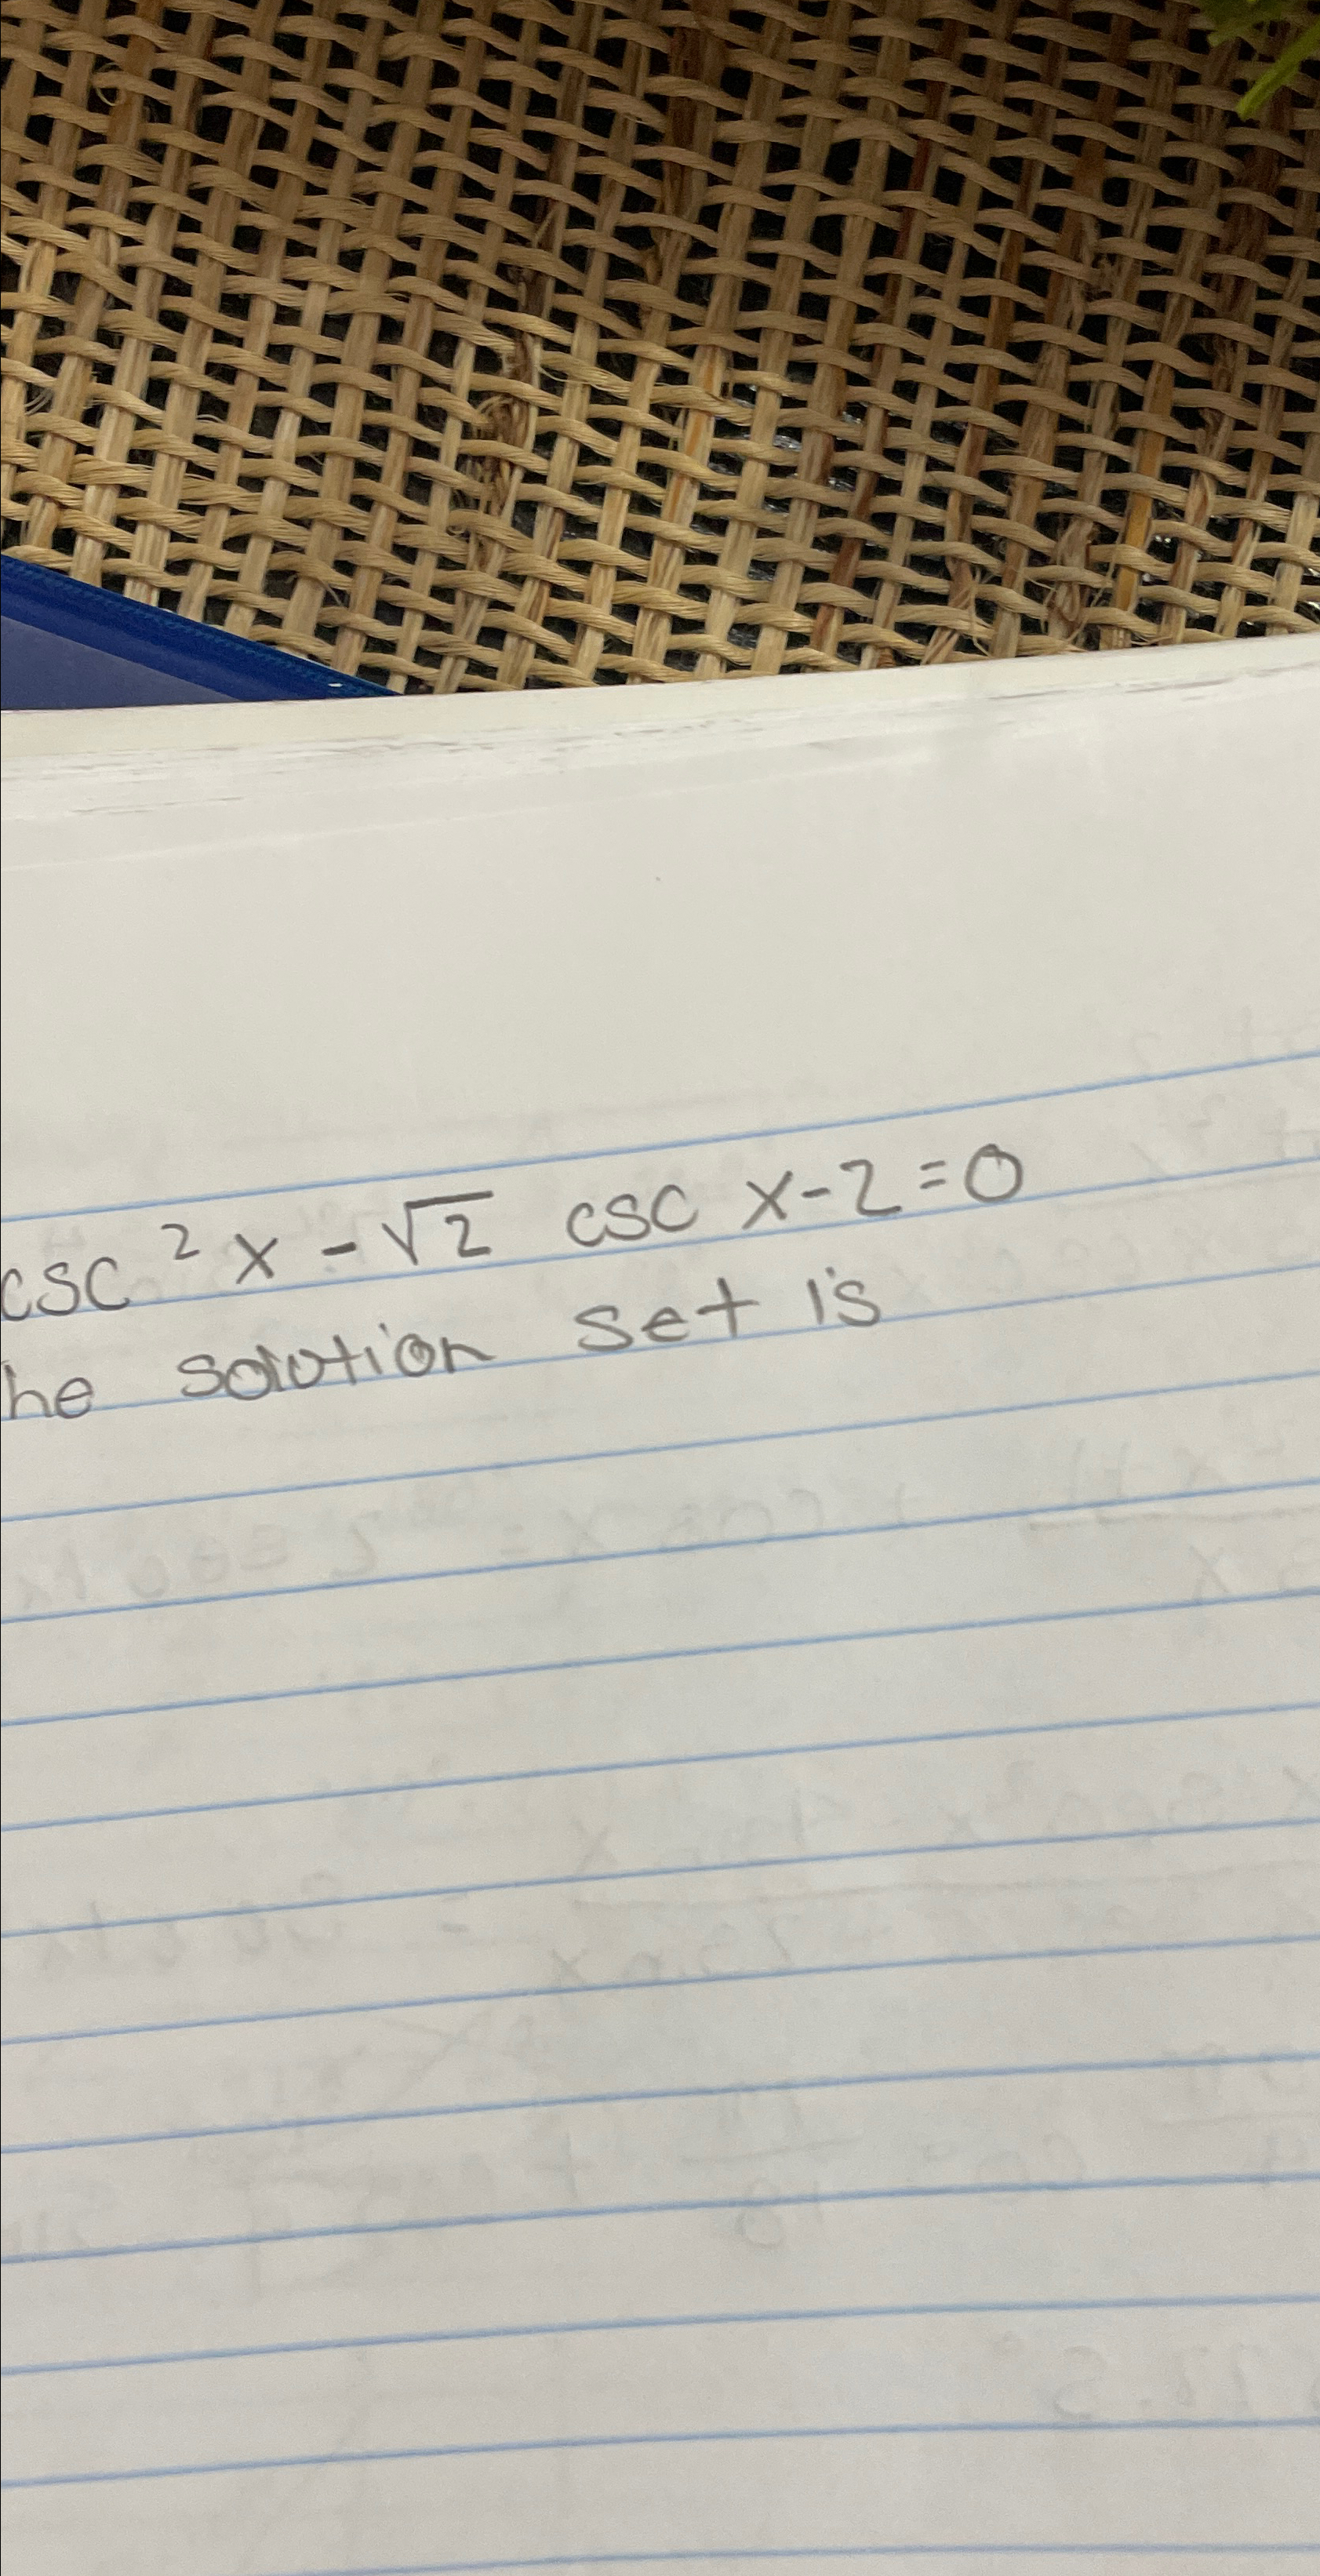 csc² x - √2 csc x - 2 = 0
he solution set is